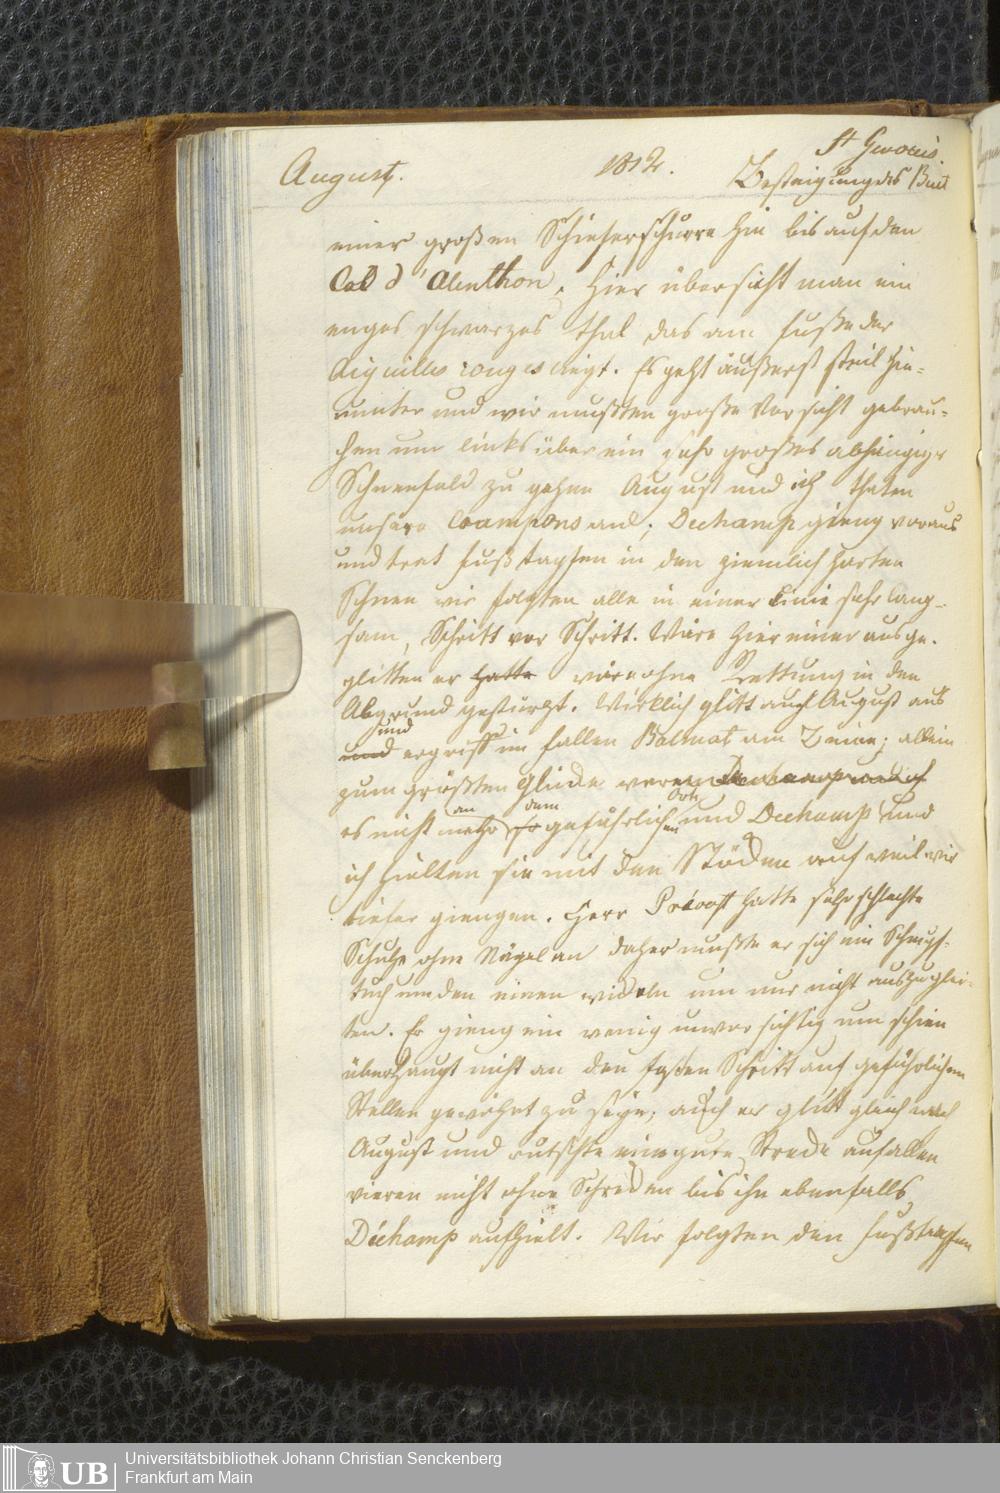 August.
1812.
St Gervais.
Besteigung des Buet
einer großen Schieferschurre hin bis auf den
Col d'Alenthon, Hier übersieht man ein
enges schwarzes Thal das am Fuße der
Aiguilles rouges liegt. Es geht äußerst steil hin=
unter und wir mußten große Vorsicht gebrau=
chen um links über ein sehr großes abhängiges
Schneefeld zu gehen August und ich thaten
unsere Crampons an; Dechamp gieng voraus
und trat Fußtapfen in den ziemlich harten
Schnee wir folgten alle in einer Linie sehr lang=
sam, Schritt vor Schritt. Wäre hier einer ausge=
glitten er hatte wäre ohne Rettung in den
Abgrund gestürzt. Wirklich glitt auch August aus
und
und ergriff im Fallen Balmat am Beine; allein
zum größten Glücke waren Dechamp und ich
es nicht mehr so gefährlichen und Dechamp und
an dem Orte
ich hielten sie mit den Stöcken auf weil wir
tiefer giengen. Herr Prévost hatte sehr schlechte
Schuhe ohne Nägel an daher mußte er sich ein Schnupf=
tuch um den einen wickeln um nur nicht auszuglei=
ten. Er gieng ein wenig unvorsichtig um schien
überhaupt nicht an den festen Schritt auf gefährlichen
Stellen gewöhnt zu seyn; auch er glitt gleich nach
August und rutschte eine gute Strecke auf allen
vieren nicht ohne Schrecken bis ihn ebenfalls
Déchamp aufhielt. Wir folgten den Fußtapfen
Universitätsbibliothek Johann Christian Senckenberg
Frankfurt am Main
UB